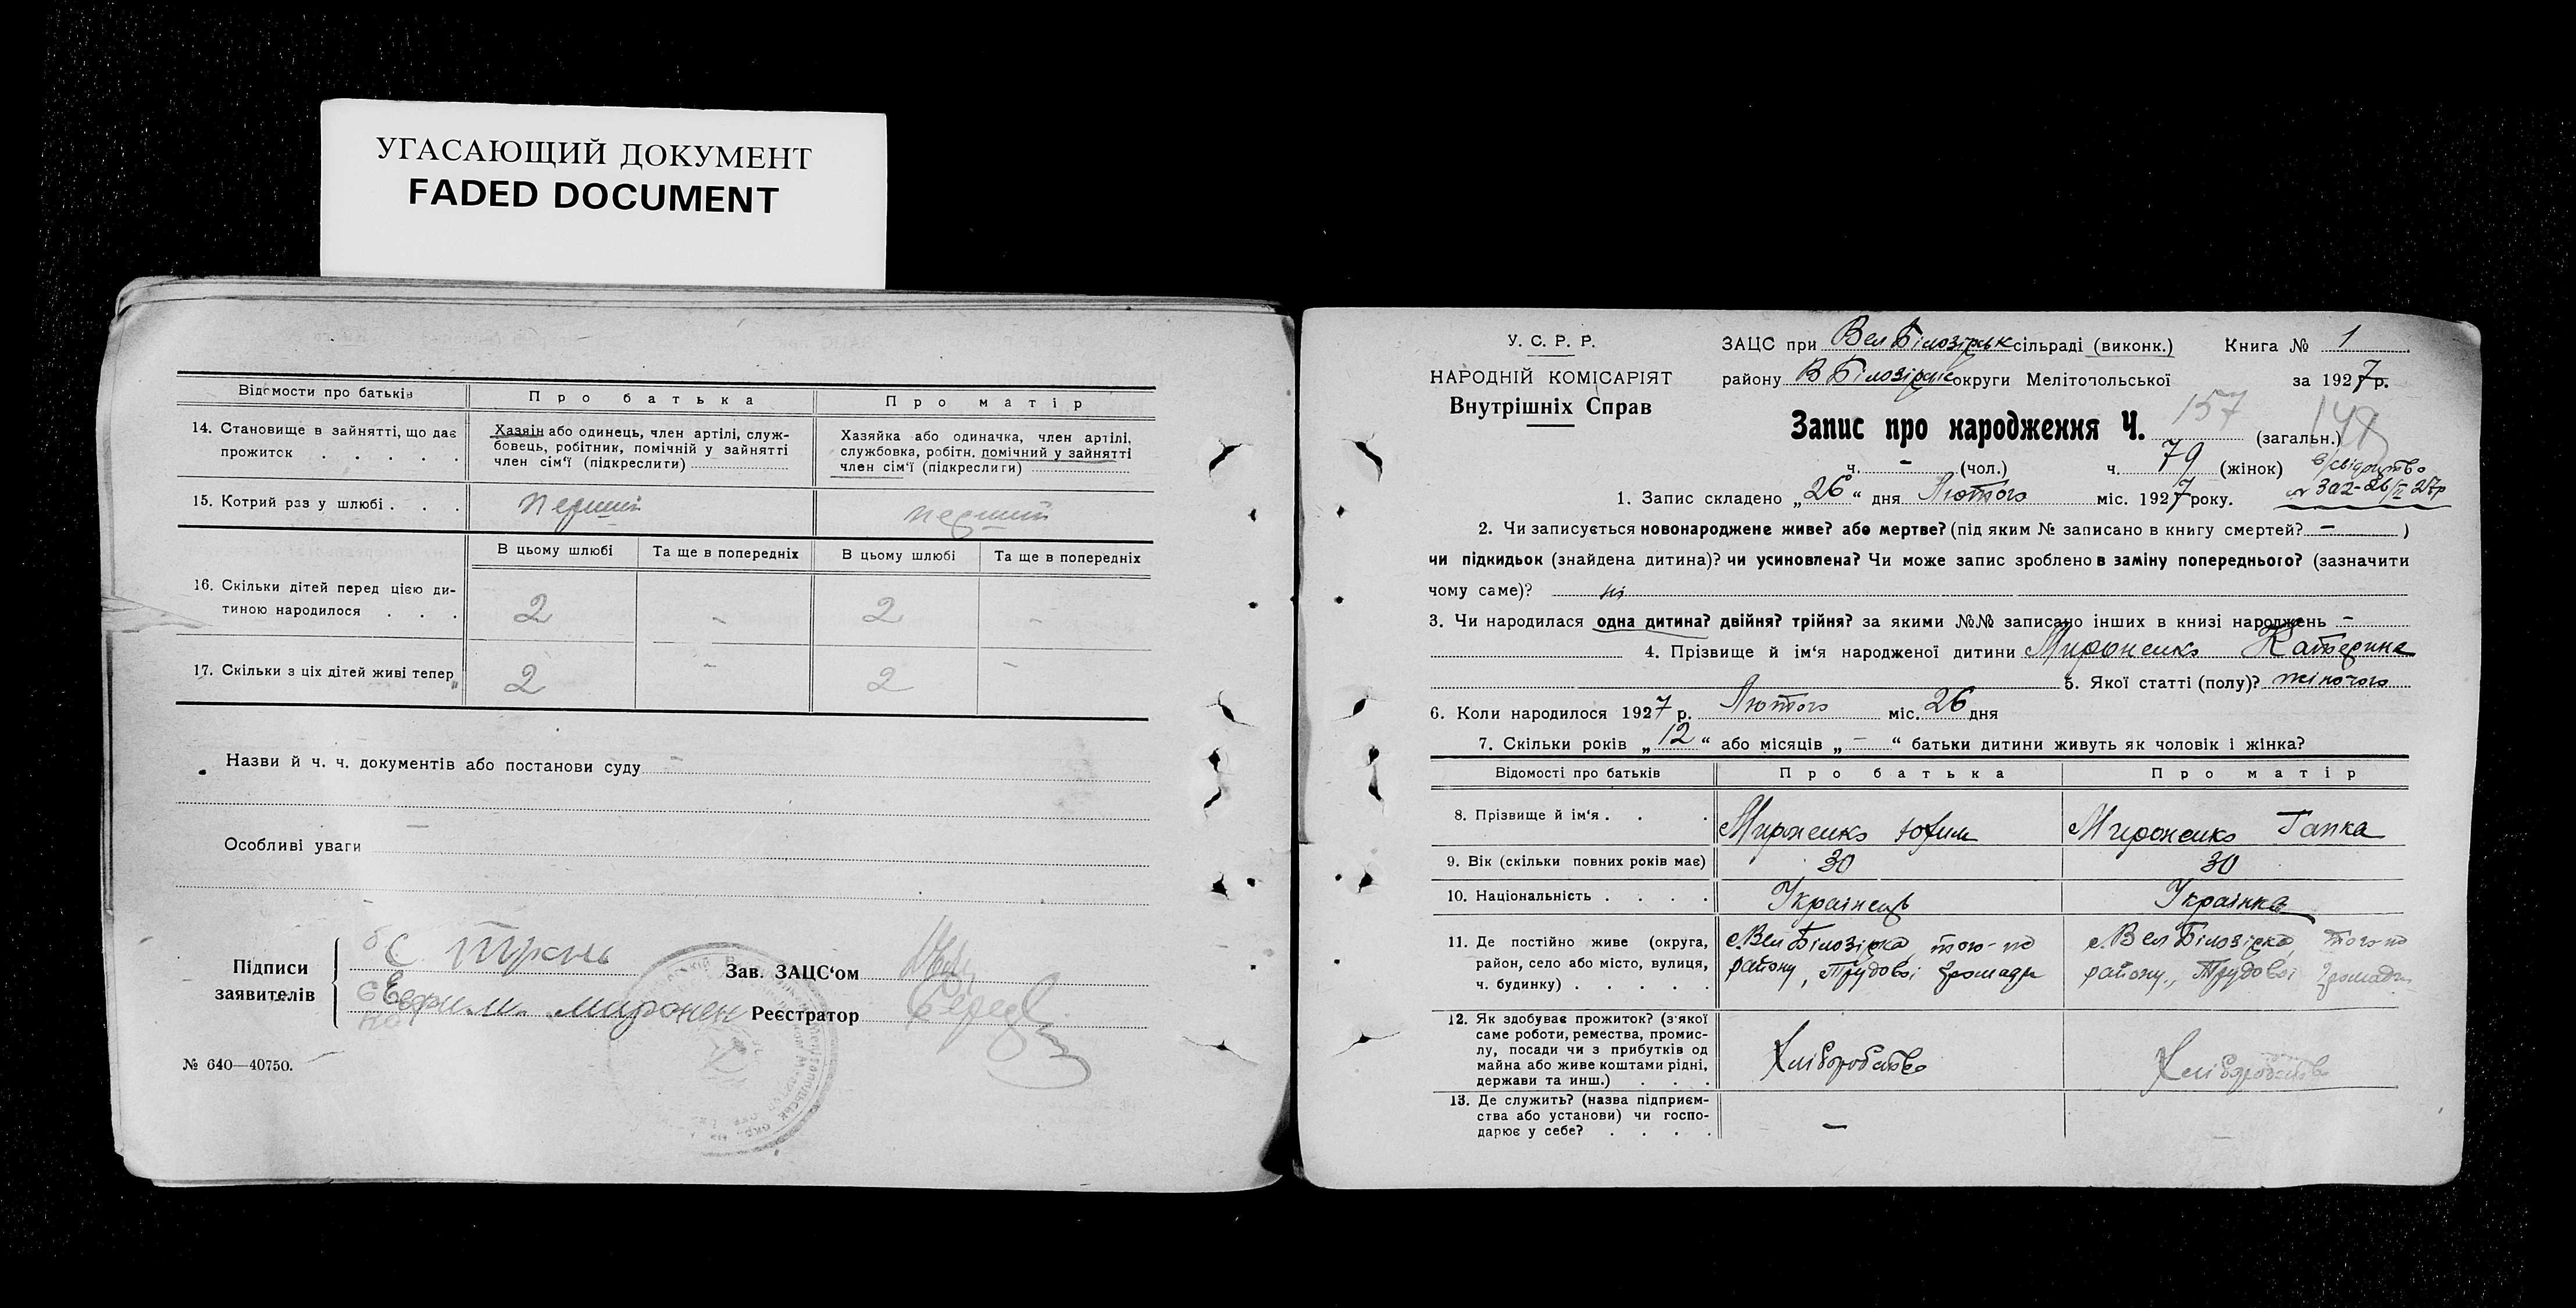 УГАСАЮЩИЙ ДОКУМЕНТ
FADED DOCUMENT
Відомости про батьків
Про батька
Про матір
14. Становище в зайнятті, що дає прожиток . . . . .
Хазяїн або одинець, член артілі, служ-
бовець, робітник, помічній у зайнятті
член сім'ї (підкреслити)
Хазяйка або одиначка, член артілі,
службовка, робітн. помічний у зайнятті
член сім'ї (підкреслити)
15. Котрий раз у шлюбі . . . перший перший
В цьому шлюбі Та ще в попередніх В цьому шлюбі Та ще в попередніх
16. Скільки дітей перед цією ди-
тиною народилося . . . 2 - 2 -
17. Скільки з ціх дітей живі тепер „ 2 - 2 -
Назви й ч. ч. документів або постанови суду -
Особливі уваги
Підписи
заявителів
Зав. ЗАЦС'ом
Реєстратор
№ 640—40750.
У. С. Р. Р.
НАРОДНІЙ КОМІСАРІЯТ
Внутрішніх Справ
ЗАЦС при Вел Білозірськ сільраді (виконк.) Книга № 1
району В Білозірськ округи Мелітопольської за 1927 р.
Запис про народження Ч. 157 (загальн.) 148
ч. - (чол.) ч. 79 (жінок)
в/свідоцтво
№ 302-26/II 27р
1. Запис складено „26“ дня Лютого міс. 1927 року.
2. Чи записується новонароджене живе? або мертве? (під яким № записано в книгу смертей? - )
чи підкидьок (знайдена дитина)? чи усиновлена? Чи може запис зроблено в заміну попереднього? (зазначити
чому саме)? ні
3. Чи народилася одна дитина? двійня? трійня? за якими №№ записано інших в книзі народжень -
4. Прізвище й ім'я народженої дитини Мироненко Катерина
5. Якої статті (полу)? жіночого
6. Коли народилося 1927 р. Лютого міс. 26 дня
7. Скільки років „12“ або місяців „-“ батьки дитини живуть як чоловік і жінка?
Відомості про батьків
Про батька
Про матір
8. Прізвище й ім'я . . . Мироненко Юхим Мироненко Гапка
9. Вік (скільки повних років має) 30 30
10. Національність . . . . Українець Українка
11. Де постійно живе (округа,
район, село або місто, вулиця,
ч. будинку) . . . . .
с. Вел Білозірка того-по
району, Трудової громади
с. Вел Білозірка того-по
району, Трудової громади
12. Як здобуває прожиток? (з'якої
саме роботи, ремества, промис-
лу, посади чи з прибутків од
майна або живе коштами рідні,
держави та инш.) . . .
Хліборобство
Хліборобство
13. Де служить? (назва підприєм-
ства або установи) чи госпо-
дарює у себе? . . . .
-